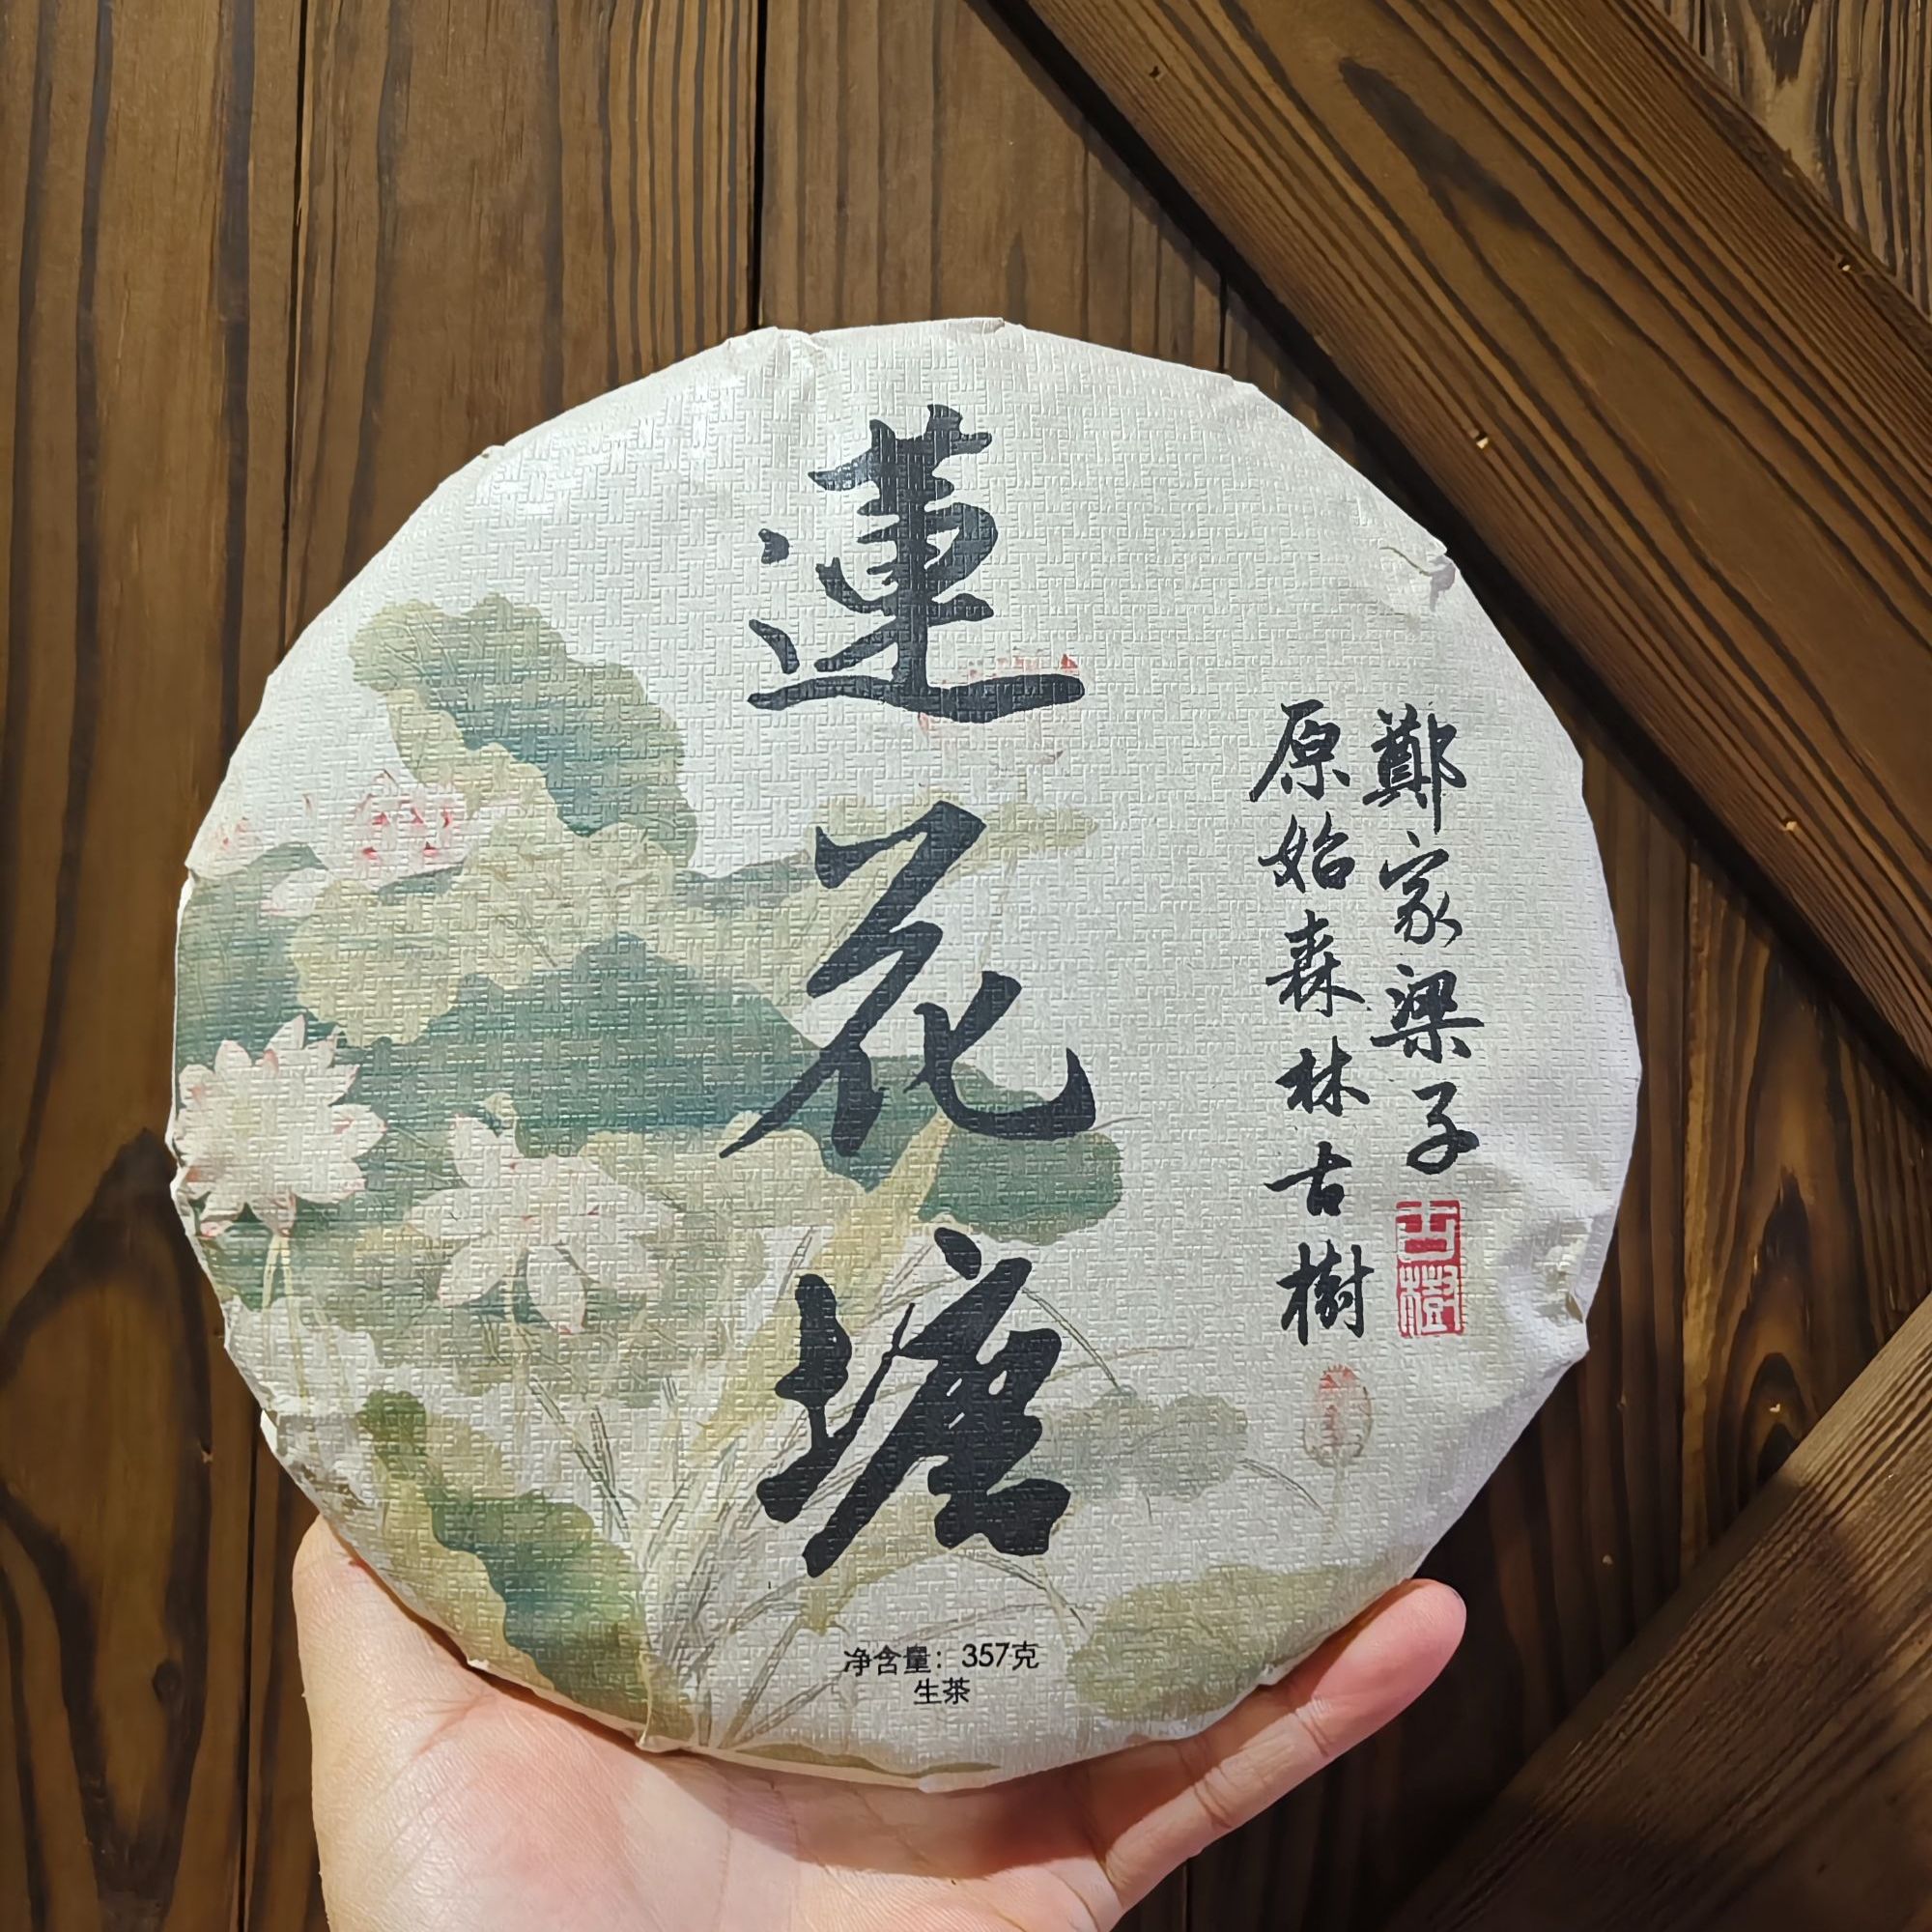 蓮花塘
鄭家梁子
原始森林古樹
古樹
净含量：357克
生茶